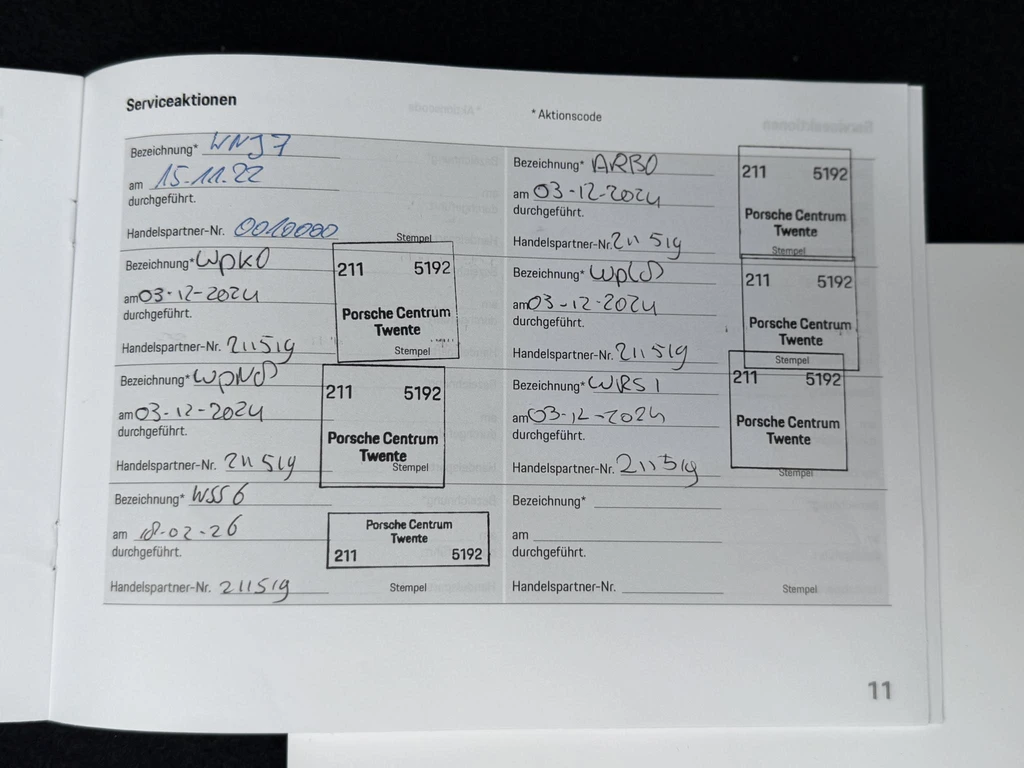 Serviceaktionen
* Aktionscode
Bezeichnung* WNJ7
am 15.11.22
durchgeführt.
Handelspartner-Nr. 0010000
Stempel
Bezeichnung* ARB0
am 03-12-2024
durchgeführt.
Handelspartner-Nr. 211519
211 5192
Porsche Centrum
Twente
Stempel
Bezeichnung* WPK0
am 03-12-2024
durchgeführt.
Handelspartner-Nr. 211519
211 5192
Porsche Centrum
Twente
Stempel
Bezeichnung* WPL8
am 03-12-2024
durchgeführt.
Handelspartner-Nr. 211519
211 5192
Porsche Centrum
Twente
Stempel
Bezeichnung* WPN8
am 03-12-2024
durchgeführt.
Handelspartner-Nr. 211519
211 5192
Porsche Centrum
Twente
Stempel
Bezeichnung* WRS1
am 03-12-2024
durchgeführt.
Handelspartner-Nr. 211519
211 5192
Porsche Centrum
Twente
Stempel
Bezeichnung* WSS6
am 18-02-26
durchgeführt.
Handelspartner-Nr. 211519
Porsche Centrum
Twente
211 5192
Stempel
Bezeichnung*
am
durchgeführt.
Handelspartner-Nr.
Stempel
11